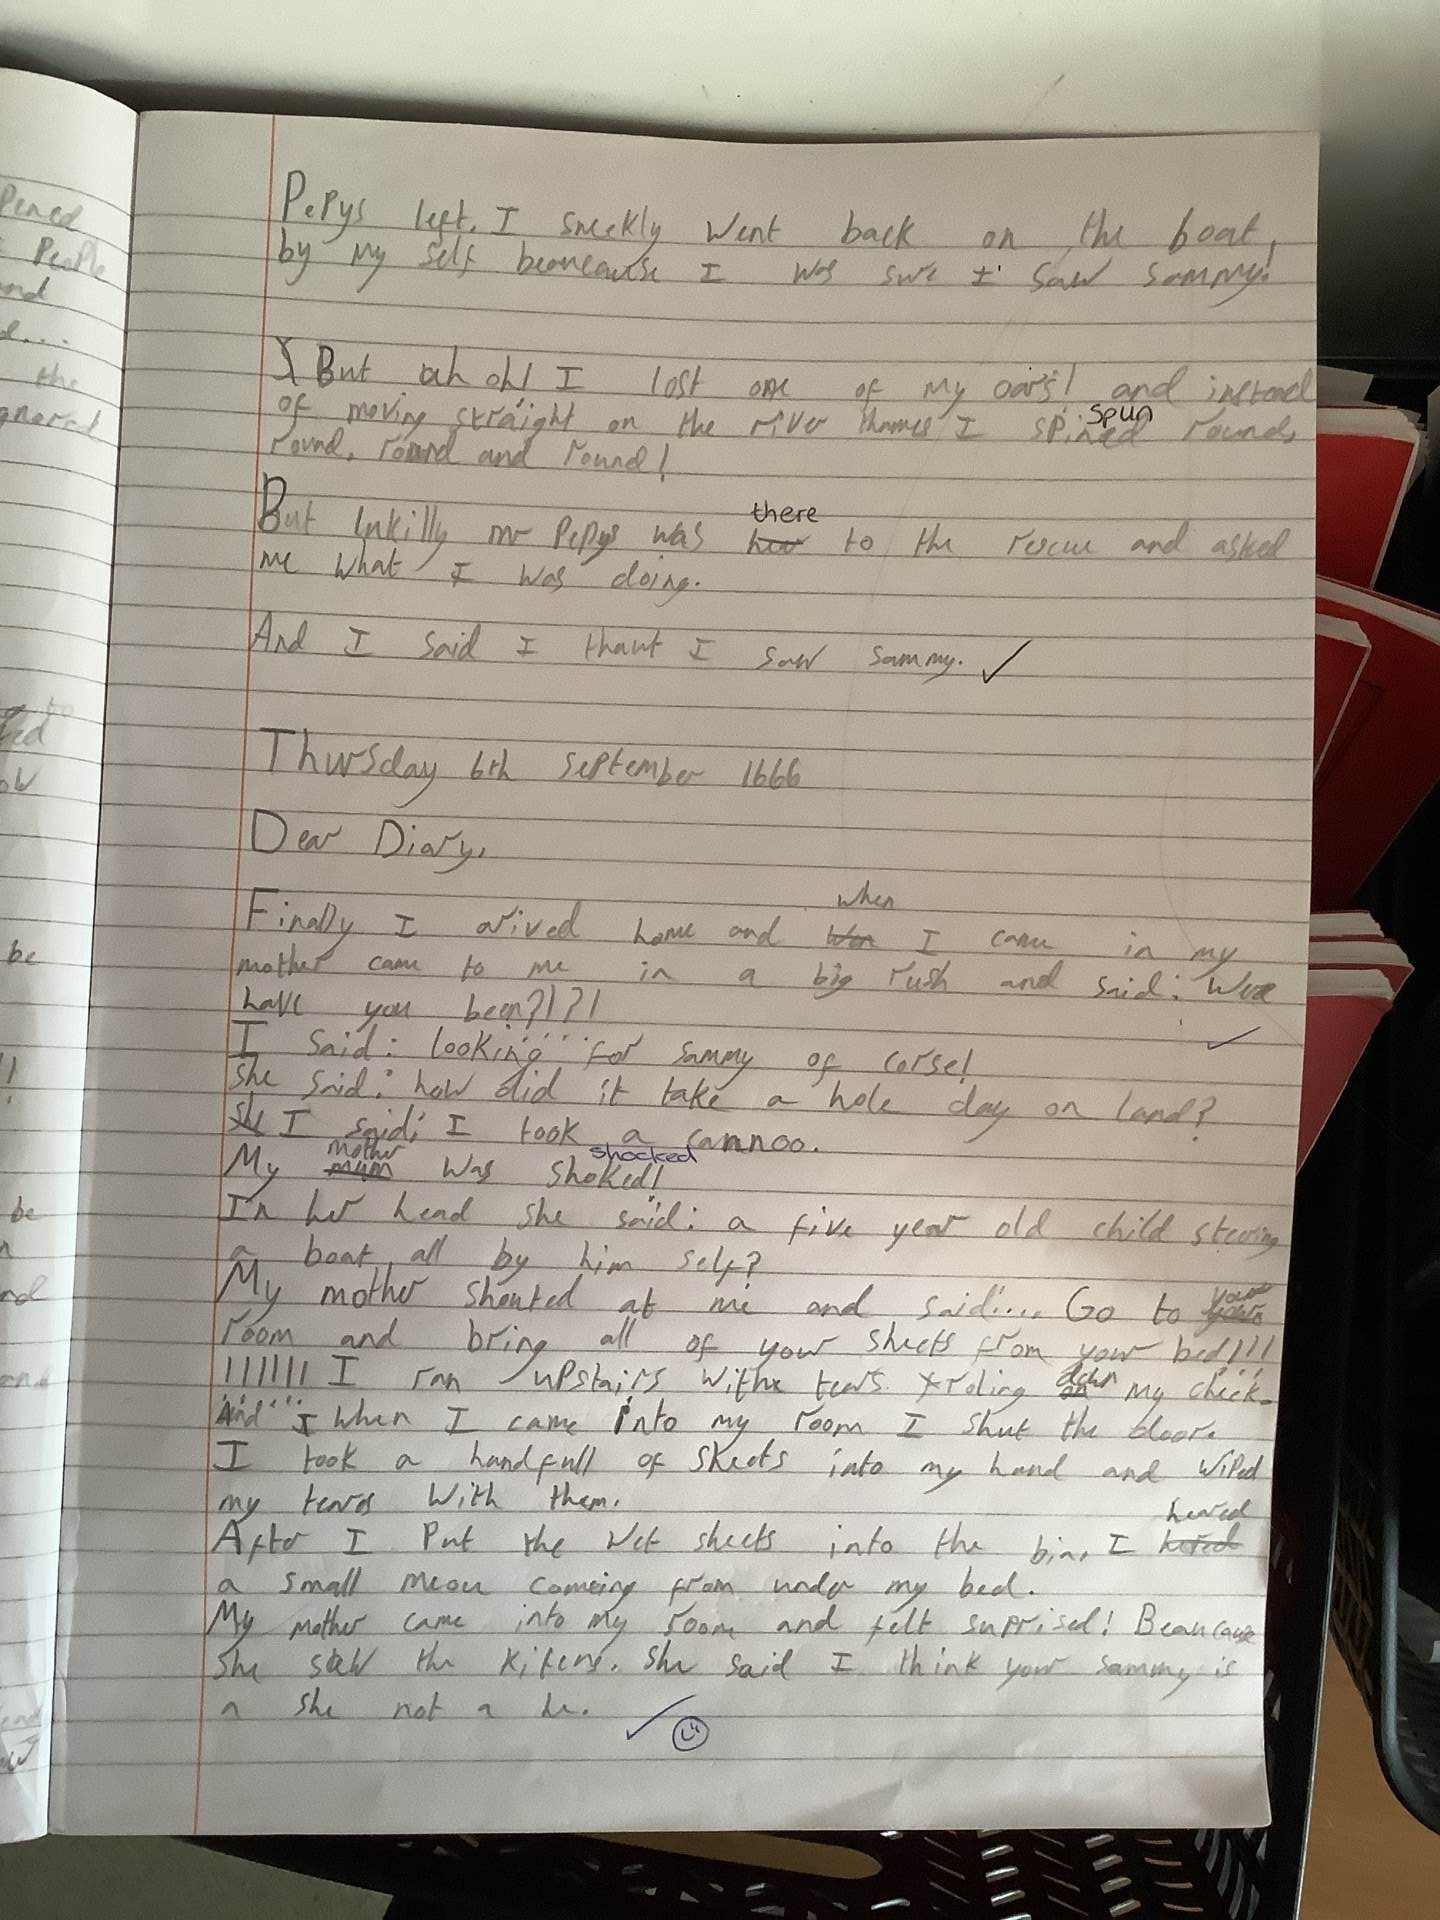 Pepys left. I sneekly went back on the boat,
by my self beaneause I was sure I saw sammy!
But uh oh! I lost one of my oars! and instead
of moving straight on the river thames I spined spun round,
round, round and round!
But lukilly mr Pepys was her there to the rescue and asked
me what I was doing.
And I said I thaut I saw sammy. ✓
Thursday 6th september 1666
Dear Diary,
Finally I arived home and wen when I came in my
mother came to me in a big rush and said: Were
have you been?!?!
I said: looking for sammy of corse!
she said: how did it take a hole day on land?
she I said: I took a cannoo.
My mum mother was shoked! shocked
In her head she said: a five year old child steering
a boat all by him self?
My mother shouted at me and said.... Go to your
room and bring all of your sheets from your bed!!!
!!!!!! I ran upstairs withe tears roling on down my cheek.
And I when I came into my room I shut the door.
I took a handfull of sheets into my hand and wiped
my tears with them.
After I put the wet sheets into the bin, I heared
a small meow comeing from under my bed.
My mother came into my room and felt surprised! Beaucause
she saw the kitens. she said I think your sammy is
a she not a he.
pened
people
and
d...
the
gnored
to
ted
ow
be
!!
be
n
nd
and